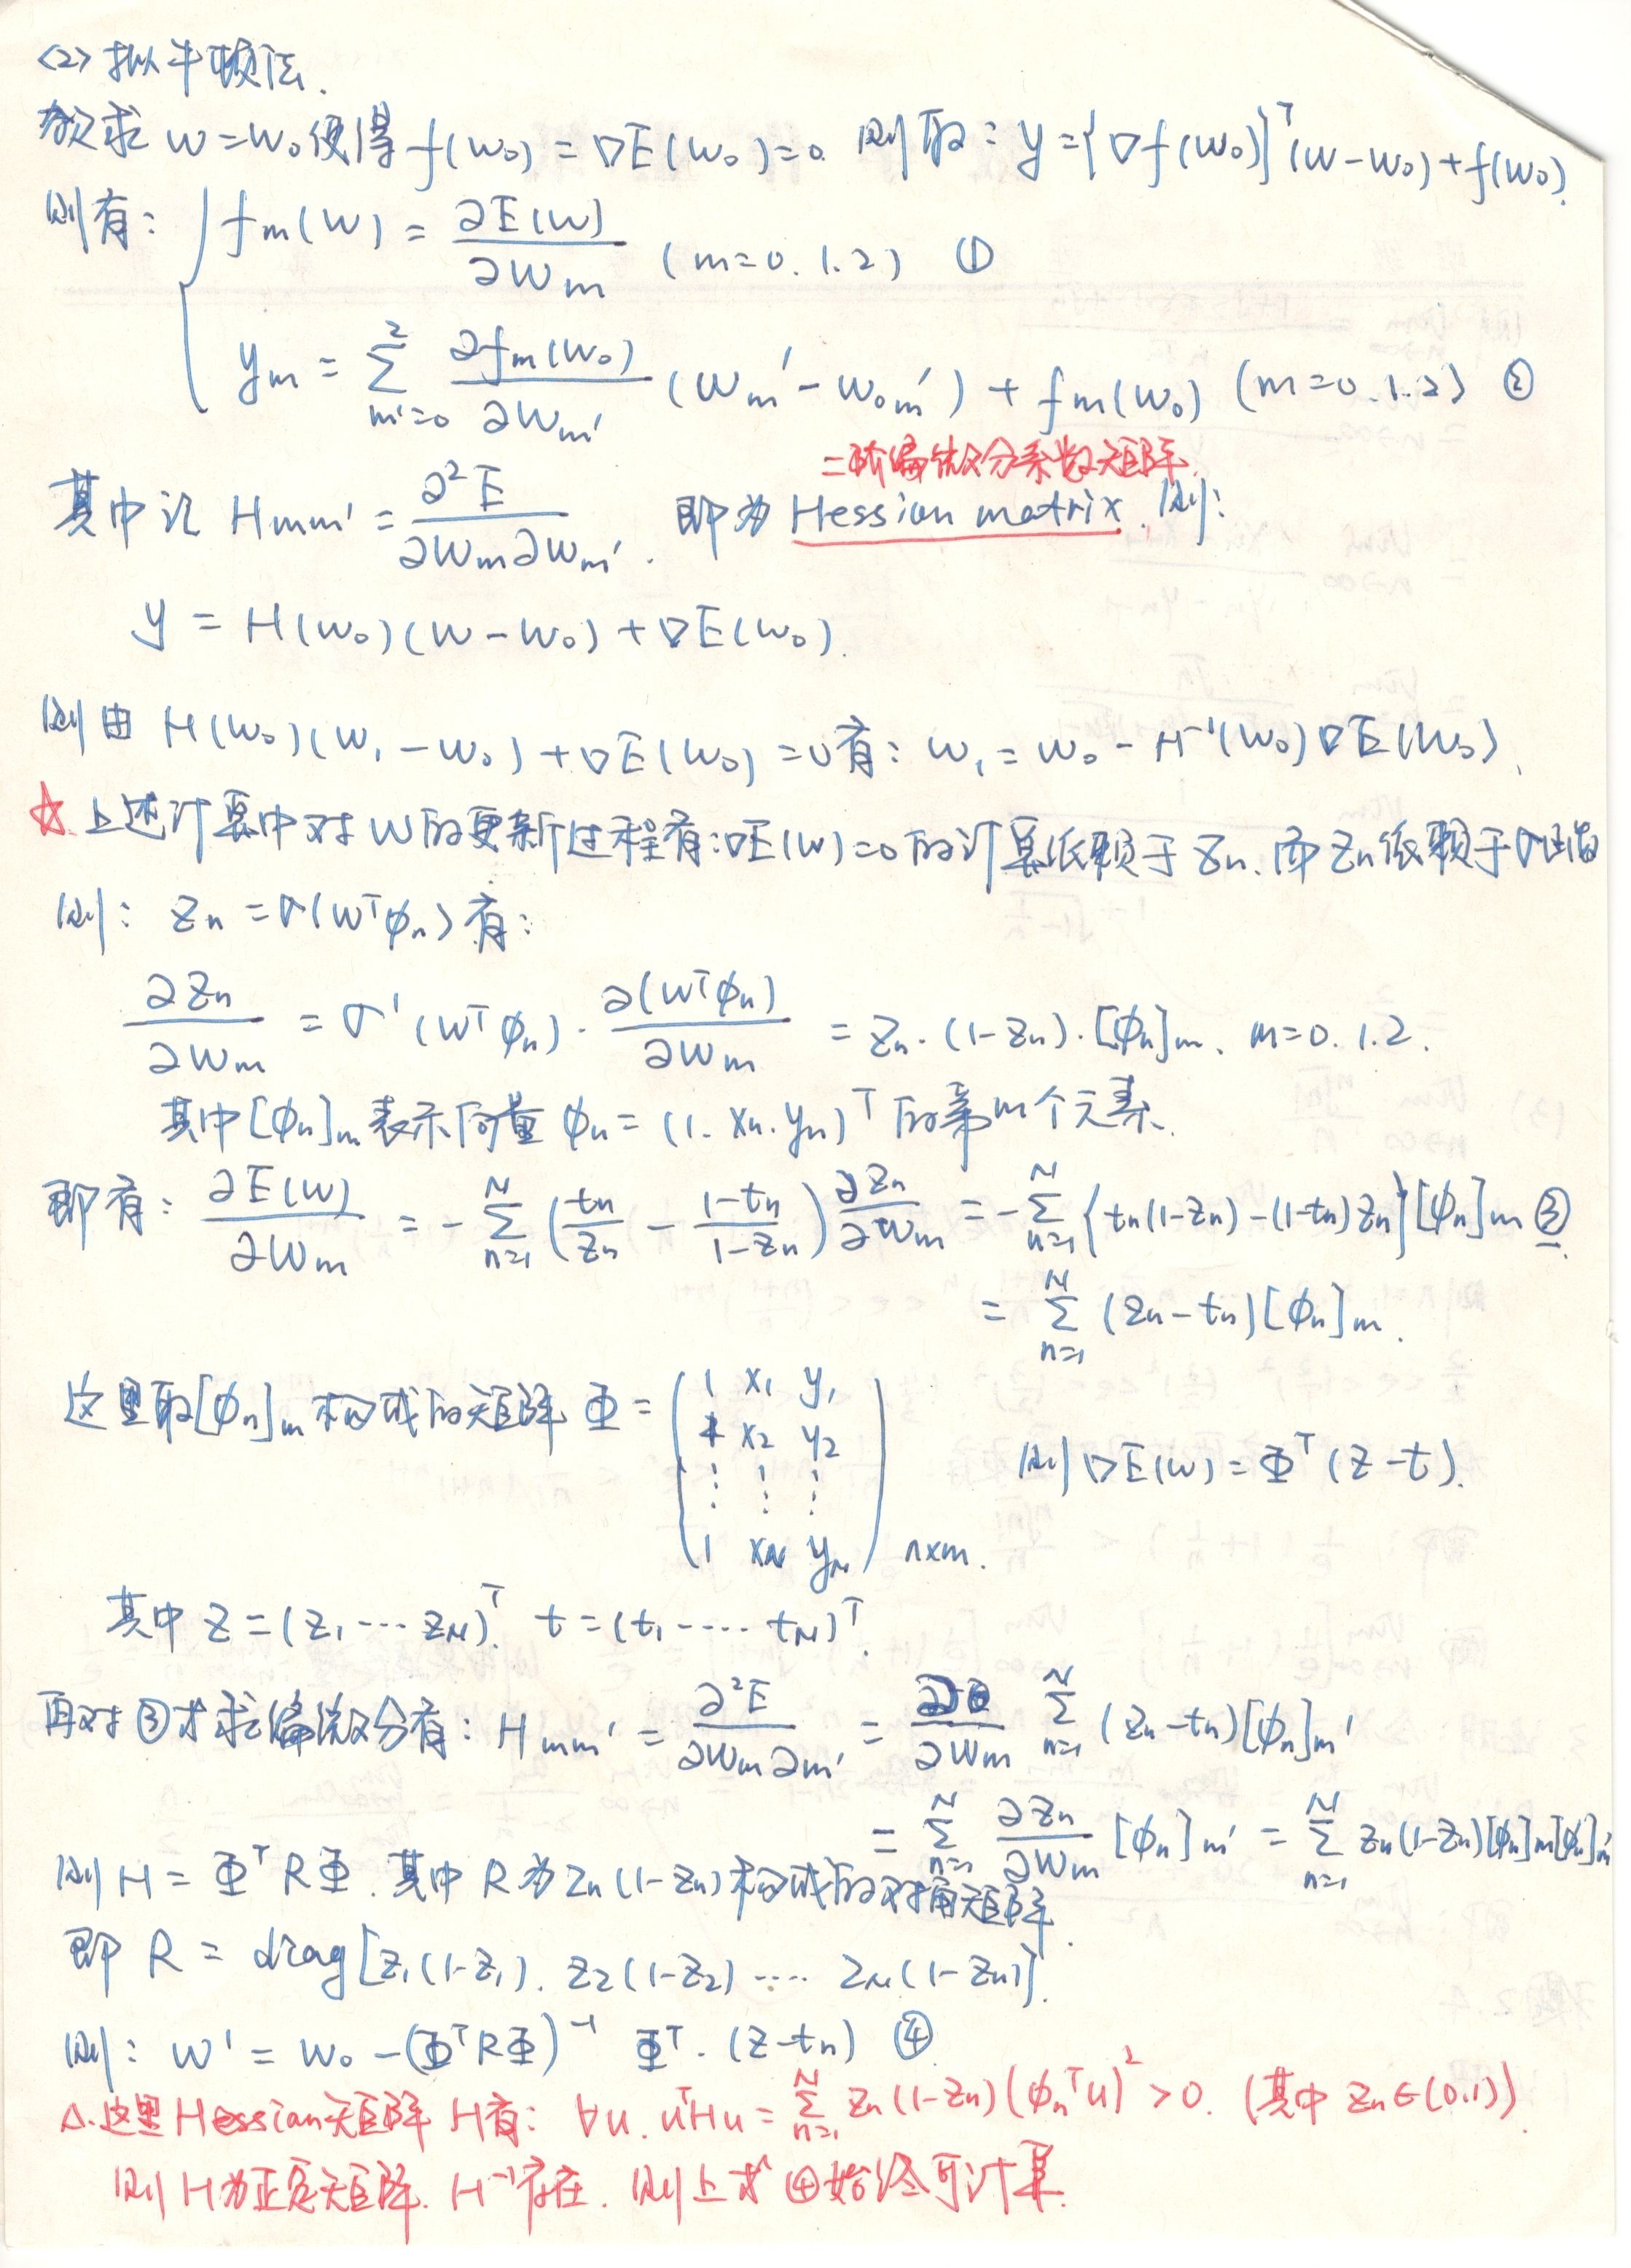 <2> 拟牛顿法.
欲求 w=w₀使得 f(w₀)=∇E(w₀)=0. 则取: y={∇f(w₀)}ᵀ(w-w₀)+f(w₀).
则有: { fm(w) = ∂E(w)/∂wm (m=0.1.2) ①
ym = Σ_{m'=0}^{2} ∂fm(w₀)/∂wm' (wm'-w₀m') + fm(w₀) (m=0.1.2) ②
二阶偏微分系数矩阵.
其中记 Hmm' = ∂²E/∂wm∂wm'. 即为 Hessian matrix. 则:
y = H(w₀)(w-w₀)+∇E(w₀).
则由 H(w₀)(w₁-w₀)+∇E(w₀)=0有: w₁=w₀-H⁻¹(w₀)∇E(w₀).
☆.上述计算中对w的更新过程有:∇E(w)=0的计算依赖于zn.而zn依赖于σ
则: zn=σ(wᵀφn)有:
∂zn/∂wm = σ'(wᵀφn)·∂(wᵀφn)/∂wm = zn·(1-zn)·[φn]m. m=0.1.2.
其中[φn]m表示向量 φn=(1.xn.yn)ᵀ的第m个元素.
即有: ∂E(w)/∂wm = -Σ_{n=1}^{N} (tn/zn - (1-tn)/(1-zn)) ∂zn/∂wm = -Σ_{n=1}^{N} {tn(1-zn)-(1-tn)zn}[φn]m ③.
= Σ_{n=1}^{N} (zn-tn)[φn]m.
这里取[φn]m构成的矩阵 Φ = ( 1 x₁ y₁
1 x₂ y₂
⋮ ⋮ ⋮ 则∇E(w)=Φᵀ(z-t).
1 xN yN ) n×m.
其中 z=(z₁…zN)ᵀ. t=(t₁….tN)ᵀ.
再对③式求偏微分有: Hmm' = ∂²E/∂wm∂m' = ∂/∂wm Σ_{n=1}^{N} (zn-tn)[φn]m'
= Σ_{n=1}^{N} ∂zn/∂wm [φn]m' = Σ_{n=1}^{N} zn(1-zn)[φn]m[φn]m'
则H=ΦᵀRΦ.其中R为zn(1-zn)构成的对角矩阵.
即 R = diag[z₁(1-z₁). z₂(1-z₂)…. zN(1-zN)].
则: w' = w₀-(ΦᵀRΦ)⁻¹ Φᵀ·(z-tn) ④
△.这里Hessian矩阵 H有: ∀u. uᵀHu = Σ_{n=1}^{N} zn(1-zn)(φnᵀu)²>0. (其中 zn∈(0.1))
则H为正定矩阵. H⁻¹存在. 则上式④始终可计算.